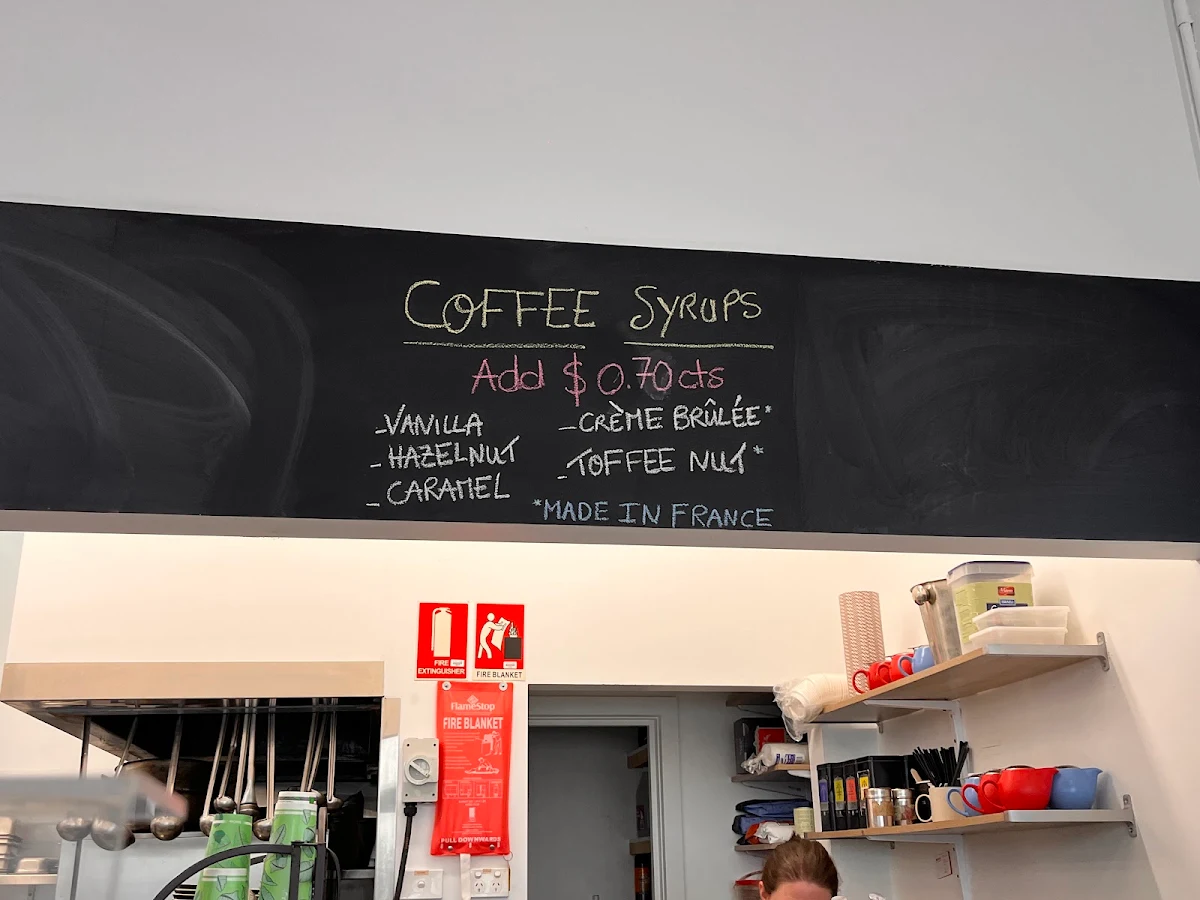 COFFEE SYRUPS
Add $0.70cts
-VANILLA
-HAZELNUT
-CARAMEL
-CRÈME BRÛLÉE*
-TOFFEE NUT*
*MADE IN FRANCE
FIRE EXTINGUISHER
FIRE BLANKET
FlameStop
FIRE BLANKET
PULL DOWNWARDS